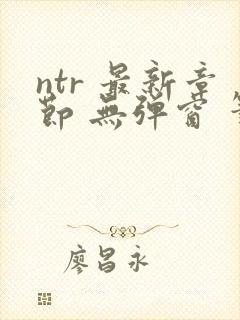 ntr 最新章
節 無彈窗
廖昌永